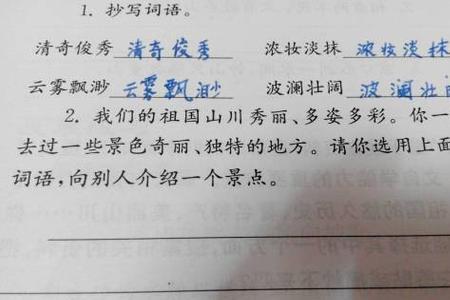 1. 抄写词语。
清奇俊秀 清奇俊秀 浓妆淡抹 浓妆淡抹
云雾飘渺 云雾飘渺 波澜壮阔 波澜壮
2. 我们的祖国山川秀丽、多姿多彩。你一
去过一些景色奇丽、独特的地方。请你选用上面
词语,向别人介绍一个景点。